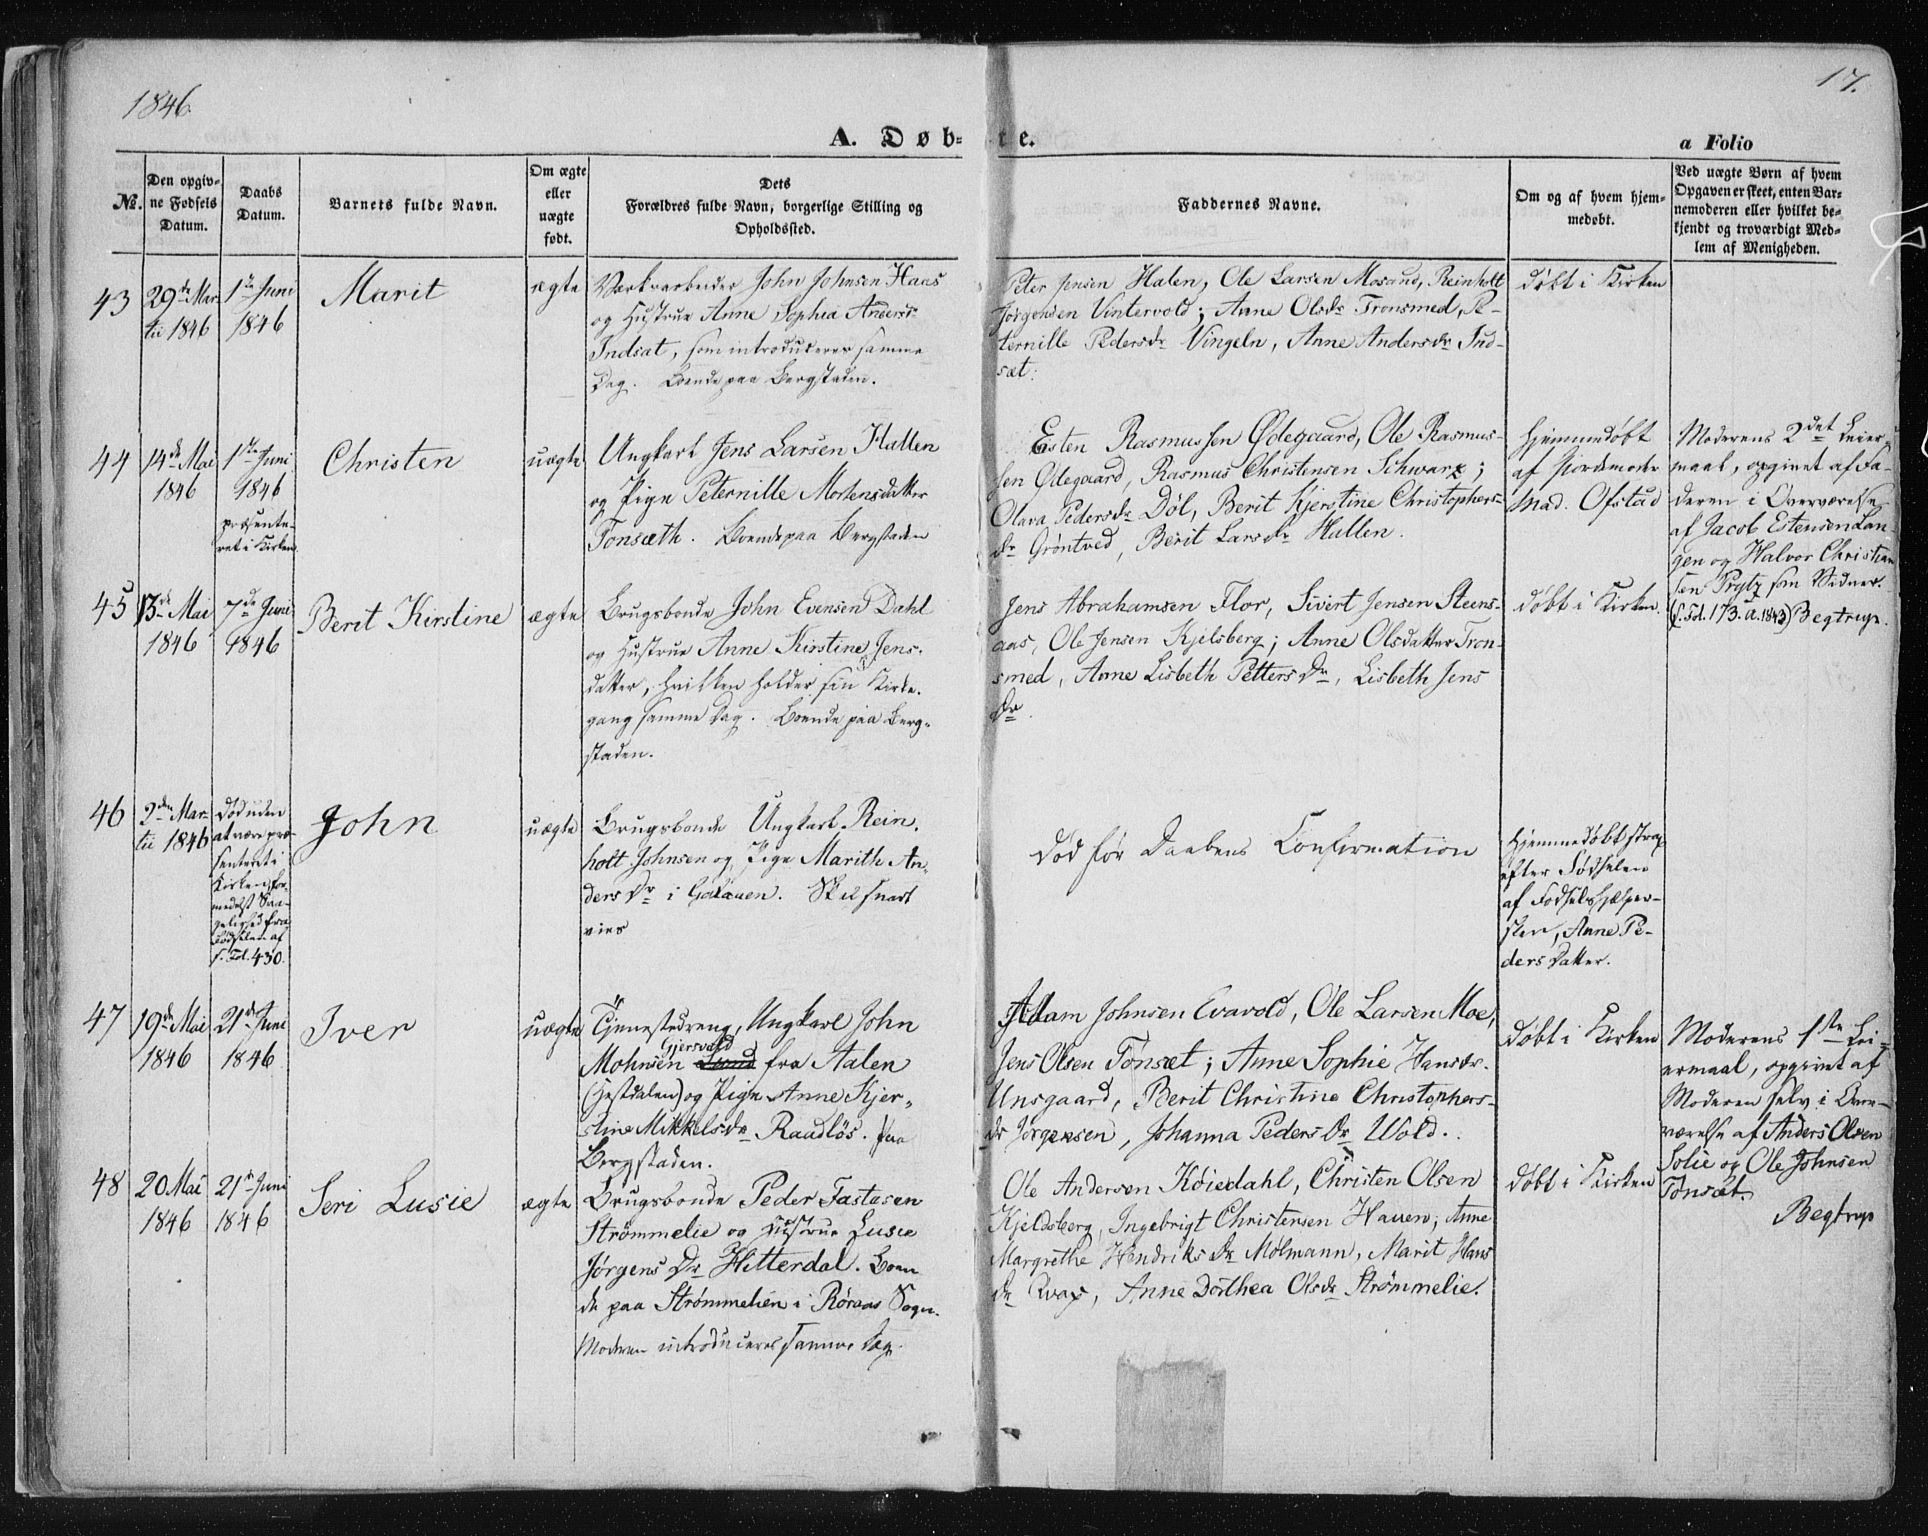 1846
17.
A. Døb-
te.
a Folio
№.
Den opgiv-
ne Fødsels
Datum.
Daabs
Datum.
Barnets fulde Navn.
Om ægte
eller
uægte
født.
Dets
Forældres fulde Navn, borgerlige Stilling og
Opholdssted.
Faddernes Navne.
Om og af hvem hjem-
medøbt.
Ved uægte Børn af hvem
Opgaven er skeet, enten Bar-
nemoderen eller hvilket be-
kjendt og troværdigt Med-
lem af Menigheden.
43
29de Mar-
tii 1846
1ste Juni
1846
Marit
ægte
Værksarbeider John Johnsen Haas
og Hustrue Anne Sophia Andersdr
Indsat, som introduceres samme
Dag. Boende paa Bergstaden.
Peter Jensen Halen, Ole Larsen Mosand, Reinholt
Jørgensen Vintervold; Anne Olsdr Tronsmed, Pe-
ternille Pedersdr Vingeln, Anne Andersdr Ind-
sæt.
døbt i Kirken
44
14de Mai
1846
1ste Juni
1846
præsente-
ret i Kirken
Christen
uægte
Ungkarl Jens Larsen Hallen
og Pige Peternille Mortensdatter
Tonsæth. Boende paa Bergstaden
Esten Rasmussen Ødegaard, Ole Rasmus-
sen Ødegaard, Rasmus Christensen Schwarz;
Olava Pedersdr Døl, Berit Kjerstine Christophers-
dr Grøntved, Berit Larsdr Hallen.
Hjemmedøbt
af Jordemoder
Mad. Ofstad
Moderens 2det Leier-
maal, opgivet af Fa-
deren i Overværelse
af Jacob Estensen Lan-
gen og Halvor Christian
sen Prytz som Vidner.
(s. Fol. 173. a. 1843) Begtrup.
45
13de Mai
1846
7de Juni
1846
Berit Kirstine
ægte
Brugsbonde John Evensen Dahl
og Hustrue Anne Kirstine Jens-
datter, hvilken holder sin Kirke-
gang samme Dag. Boende paa Berg-
staden.
Jens Abrahamsen Flor, Sivert Jensen Steens-
aas, Ole Jensen Kjelsberg; Anne Olsdatter Tron-
smed, Anne Lisbeth Petters Dr, Lisbeth Jens
Dr.
døbt i Kirken.
46
2den Mar-
tii 1846
Død uden
at være præ-
senteret i
Kirken for-
medelst Sva-
gelighed fra
Fødselen af
s. Fol. 430.
John
uægte
Brugsbonde Ungkarl Rein-
holt Johnsen og Pige Marith An-
ders Dr i Galaaen. Skal snart
vies
Død før Daabens Confirmation
Hjemmedøbt strax
efter Fødselen
af Fødselshjelper-
sken, Anne Pe-
ders Datter.
47
19de Mai
1846
21de Juni
1846
Iver
uægte
Tjenestedreng, Ungkarl John
Gjersvold
Mohnsen fra Aalen
(Hestdalen) og Pige Anne Kjer-
stine Mikkelsdr Raadløs. Paa
Bergstaden.
Adam Johnsen Evavold, Ole Larsen Moe,
Jens Olsen Tonsæt; Anne Sophie Hansdr.
Unsgaard, Berit Christine Christophers-
dr Jørgensen, Johanna Peders Dr Wold.
døbt i Kirken
Moderens 1ste Lei-
ermaal, opgivet af
Moderen selv i Over-
værelse af Anders Olsen
Solie og Ole Johnsen
Tonsæt.
Begtrup
48
20 Mai
1846
21de Juni
1846
Seri Lusie
ægte
Brugsbonde Peder Tastasen
Strømmelie og Hustrue Lusie
Jørgens Dr Hitterdal. Boen-
de paa Strømmelien i Røraas Sogn.
Moderen introduceres samme Dag.
Ole Andersen Køiedahl, Christen Olsen
Kjeldsberg, Ingebrigt Christensen Hauen; Anne
Margrethe Hendriks Dr Mølmann, Marit Hans
Dr Kvas, Anne Dorthea Olsdr Strømmelie.
døbt i Kirken